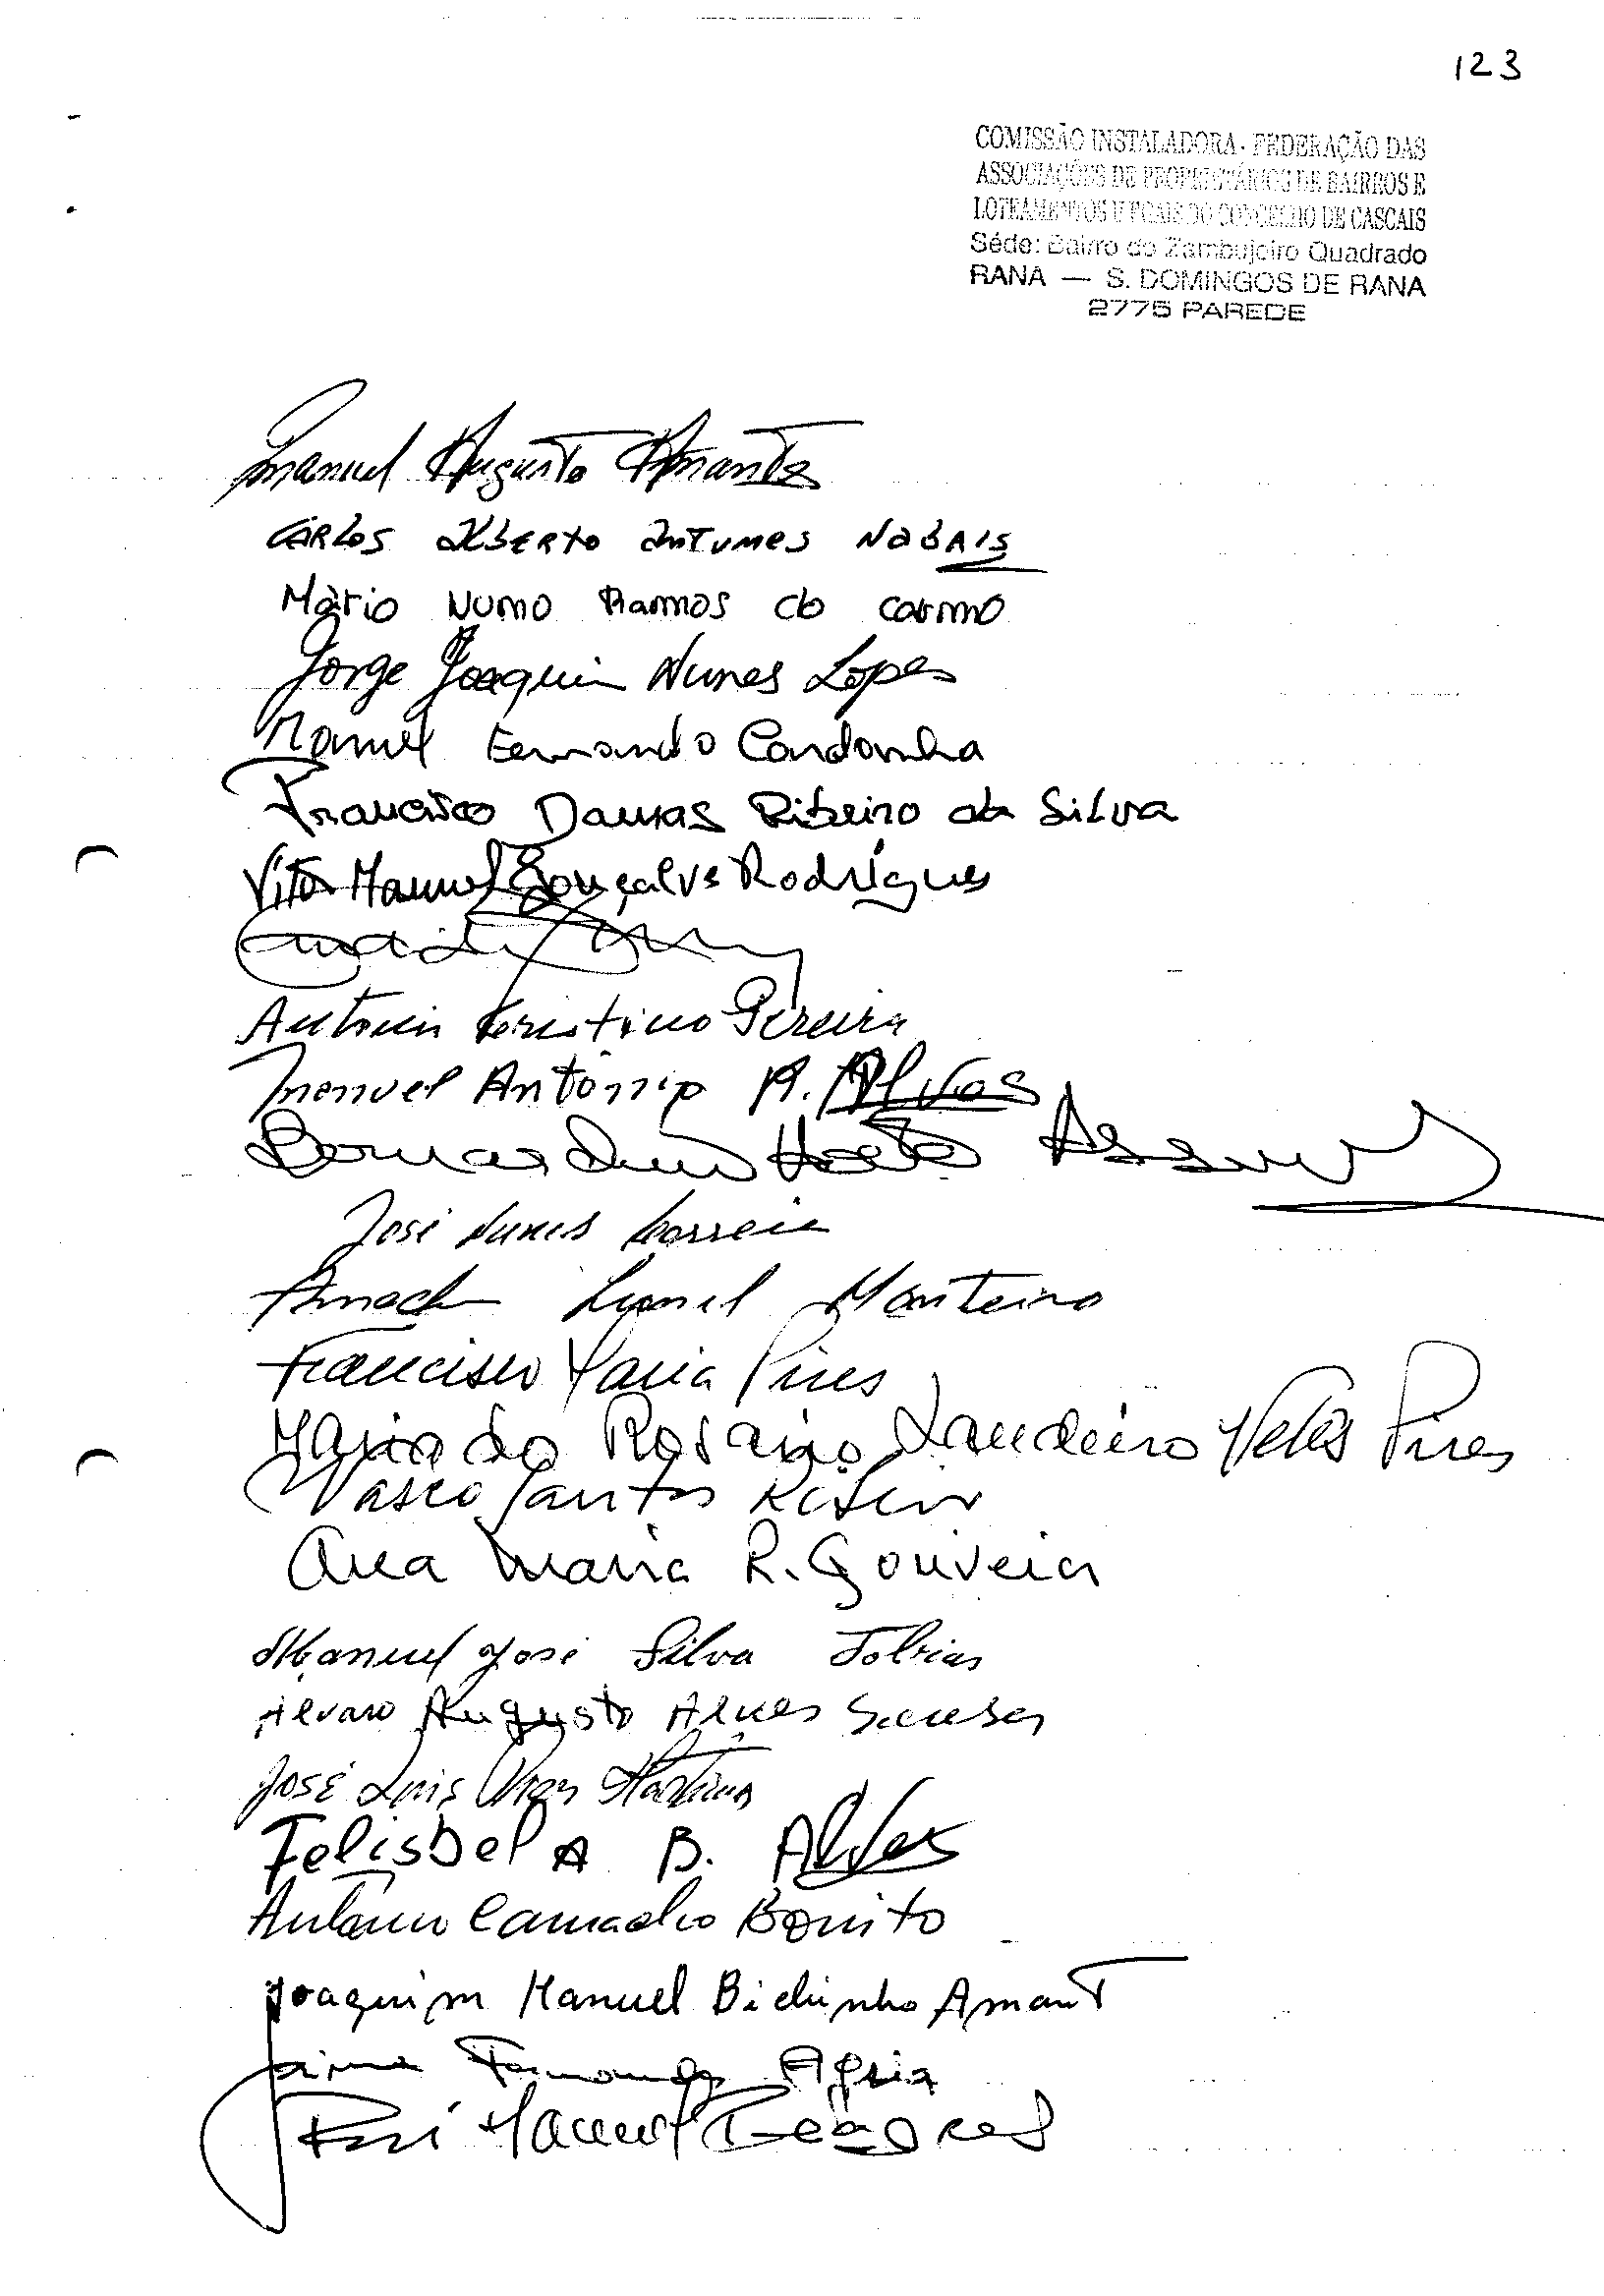 123
COMISSÃO INSTALADORA - FEDERAÇÃO DAS
ASSOCIAÇÕES DE PROPRIETÁRIOS DE BAIRROS E
LOTEAMENTOS ILEGAIS DO CONCELHO DE CASCAIS
Séde: Bairro do Zambujeiro Quadrado
RANA — S. DOMINGOS DE RANA
2775 PAREDE
Manuel Augusto Amante
CARLOS ALBERTO ANTUNES NABAIS
Mário Nuno Ramos do Carmo
Jorge Joaquim Nunes Lopes
Manuel Fernando Candonha
Francisco Damas Ribeiro da Silva
Vitor Manuel Gonçalves Rodrigues
António Cristino Pereira
Manuel António A. Alves
Bernardino
José Nunes Correia
Lionel Monteiro
Francisco Maria Pires
Maria do Rosario Landeiro Pires
Vasco Santos
Ana Maria R. Gouveia
Manuel José Silva Tobias
Alvaro Augusto Alves Sousa
José Luis Martins
Felisbela B. Alves
António Camacho Bonito
Joaquim Manuel Bichinho Amant
Jaime Fernandes
Manuel